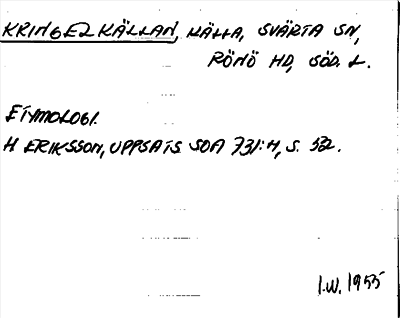 KRINGELKÄLLAN, KÄLLA, SVÄRTA SN,
RÖNÖ HD, SÖD. L.
ETYMOLOGI.
H ERIKSSON, UPPSATS SOA 731:H, S. 532.
I.W. 1955